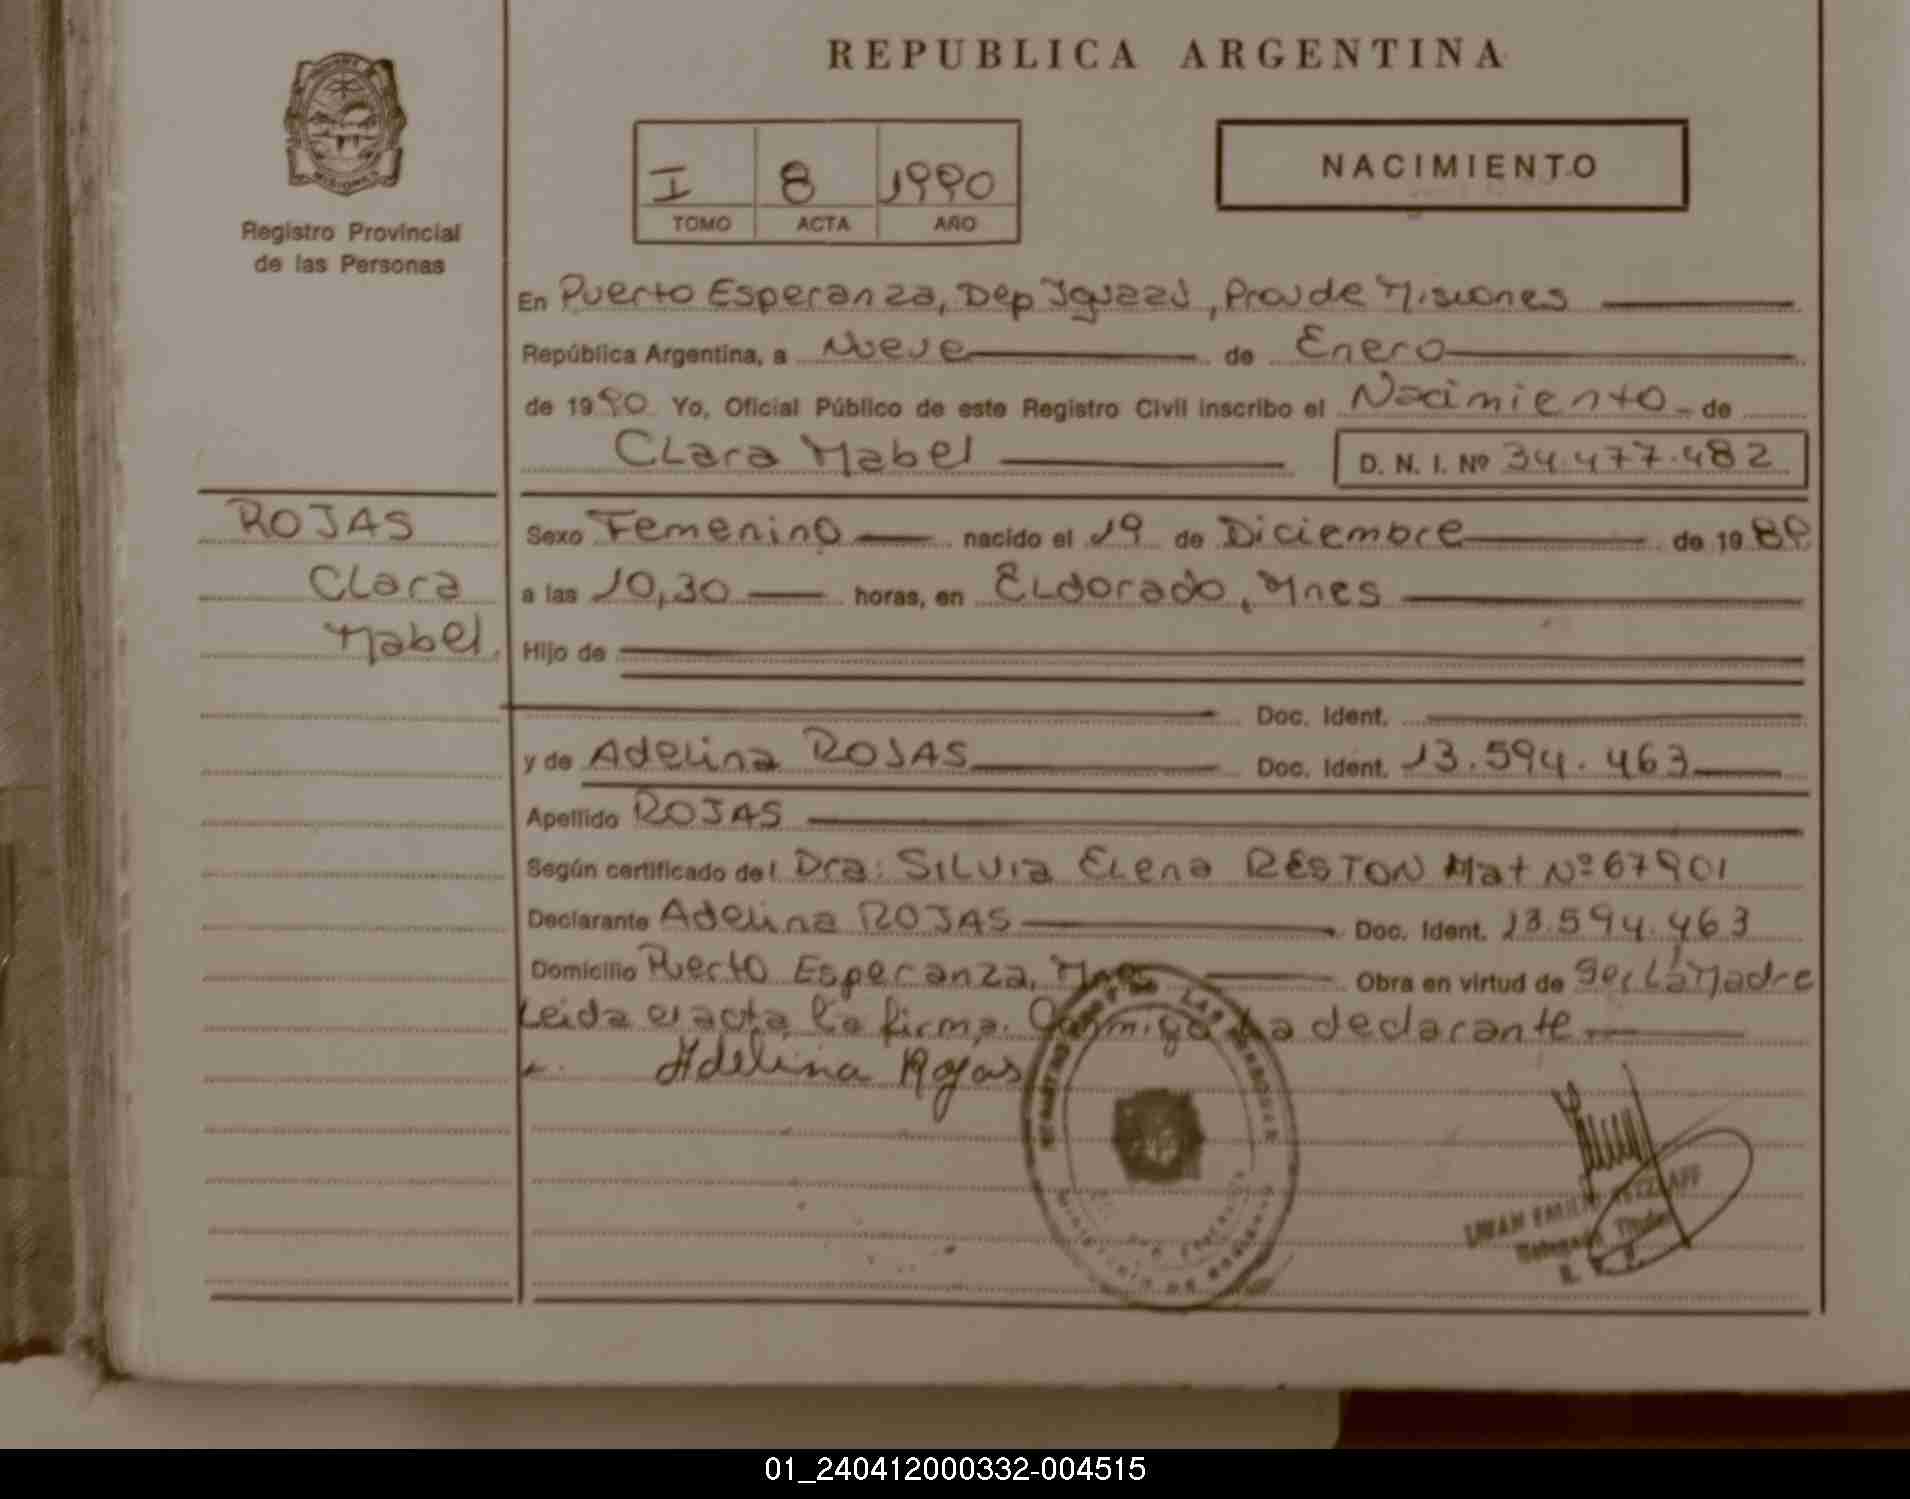 REPUBLICA ARGENTINA
MISIONES
Registro Provincial
de las Personas
I 8 1990
TOMO ACTA AÑO
NACIMIENTO
En Puerto Esperanza, Dep Iguazú, Prov de Misiones
República Argentina, a Nueve de Enero
de 1990 Yo, Oficial Público de este Registro Civil inscribo el Nacimiento de
Clara Mabel D. N. I. Nº 34.477.482
ROJAS
Clara
Mabel.
Sexo Femenino nacido el 19 de Diciembre de 1989
a las 10,30 horas, en Eldorado, Mnes
Hijo de
Doc. Ident.
y de Adelina ROJAS Doc. Ident. 13.594.463
Apellido ROJAS
Según certificado del Dra: Silvia Elena RESTON Mat Nº 67901
Declarante Adelina ROJAS Doc. Ident. 13.594.463
Domicilio Puerto Esperanza, Mnes Obra en virtud de Ser La Madre
Leida el acta, la firma. Conmigo La declarante
Adelina Rojas
DE LAS PERSONAS
MINISTERIO DE GOBIERNO
Titular
01_240412000332-004515